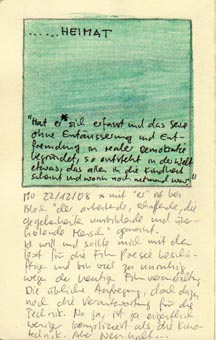 ...... HEIMAT
"Hat er* sich erfasst und das Seine
ohne Entäusserung und Ent-
fremdung in realer Demokratie
begründet, so entsteht in der Welt
etwas, das allen in die Kindheit
scheint und worin noch niemand war."
Mo 22/12/08 * mit "er" ist bei
Bloch "der arbeitende, schaffende, die
gegebenheiten umbildende und über-
holende Mensch" gemeint.
Ich will und sollte mich mit dem
Text für die Film Poesie beschäf-
tigen und bin viel zu
wegen die heutige Filmveranstaltung.
Die übliche Aufregung,
noch die Verantwortung für die
Technik. Na ja, ist ja eigentlich
weniger kompliziert als die Kino-
technik. Aber